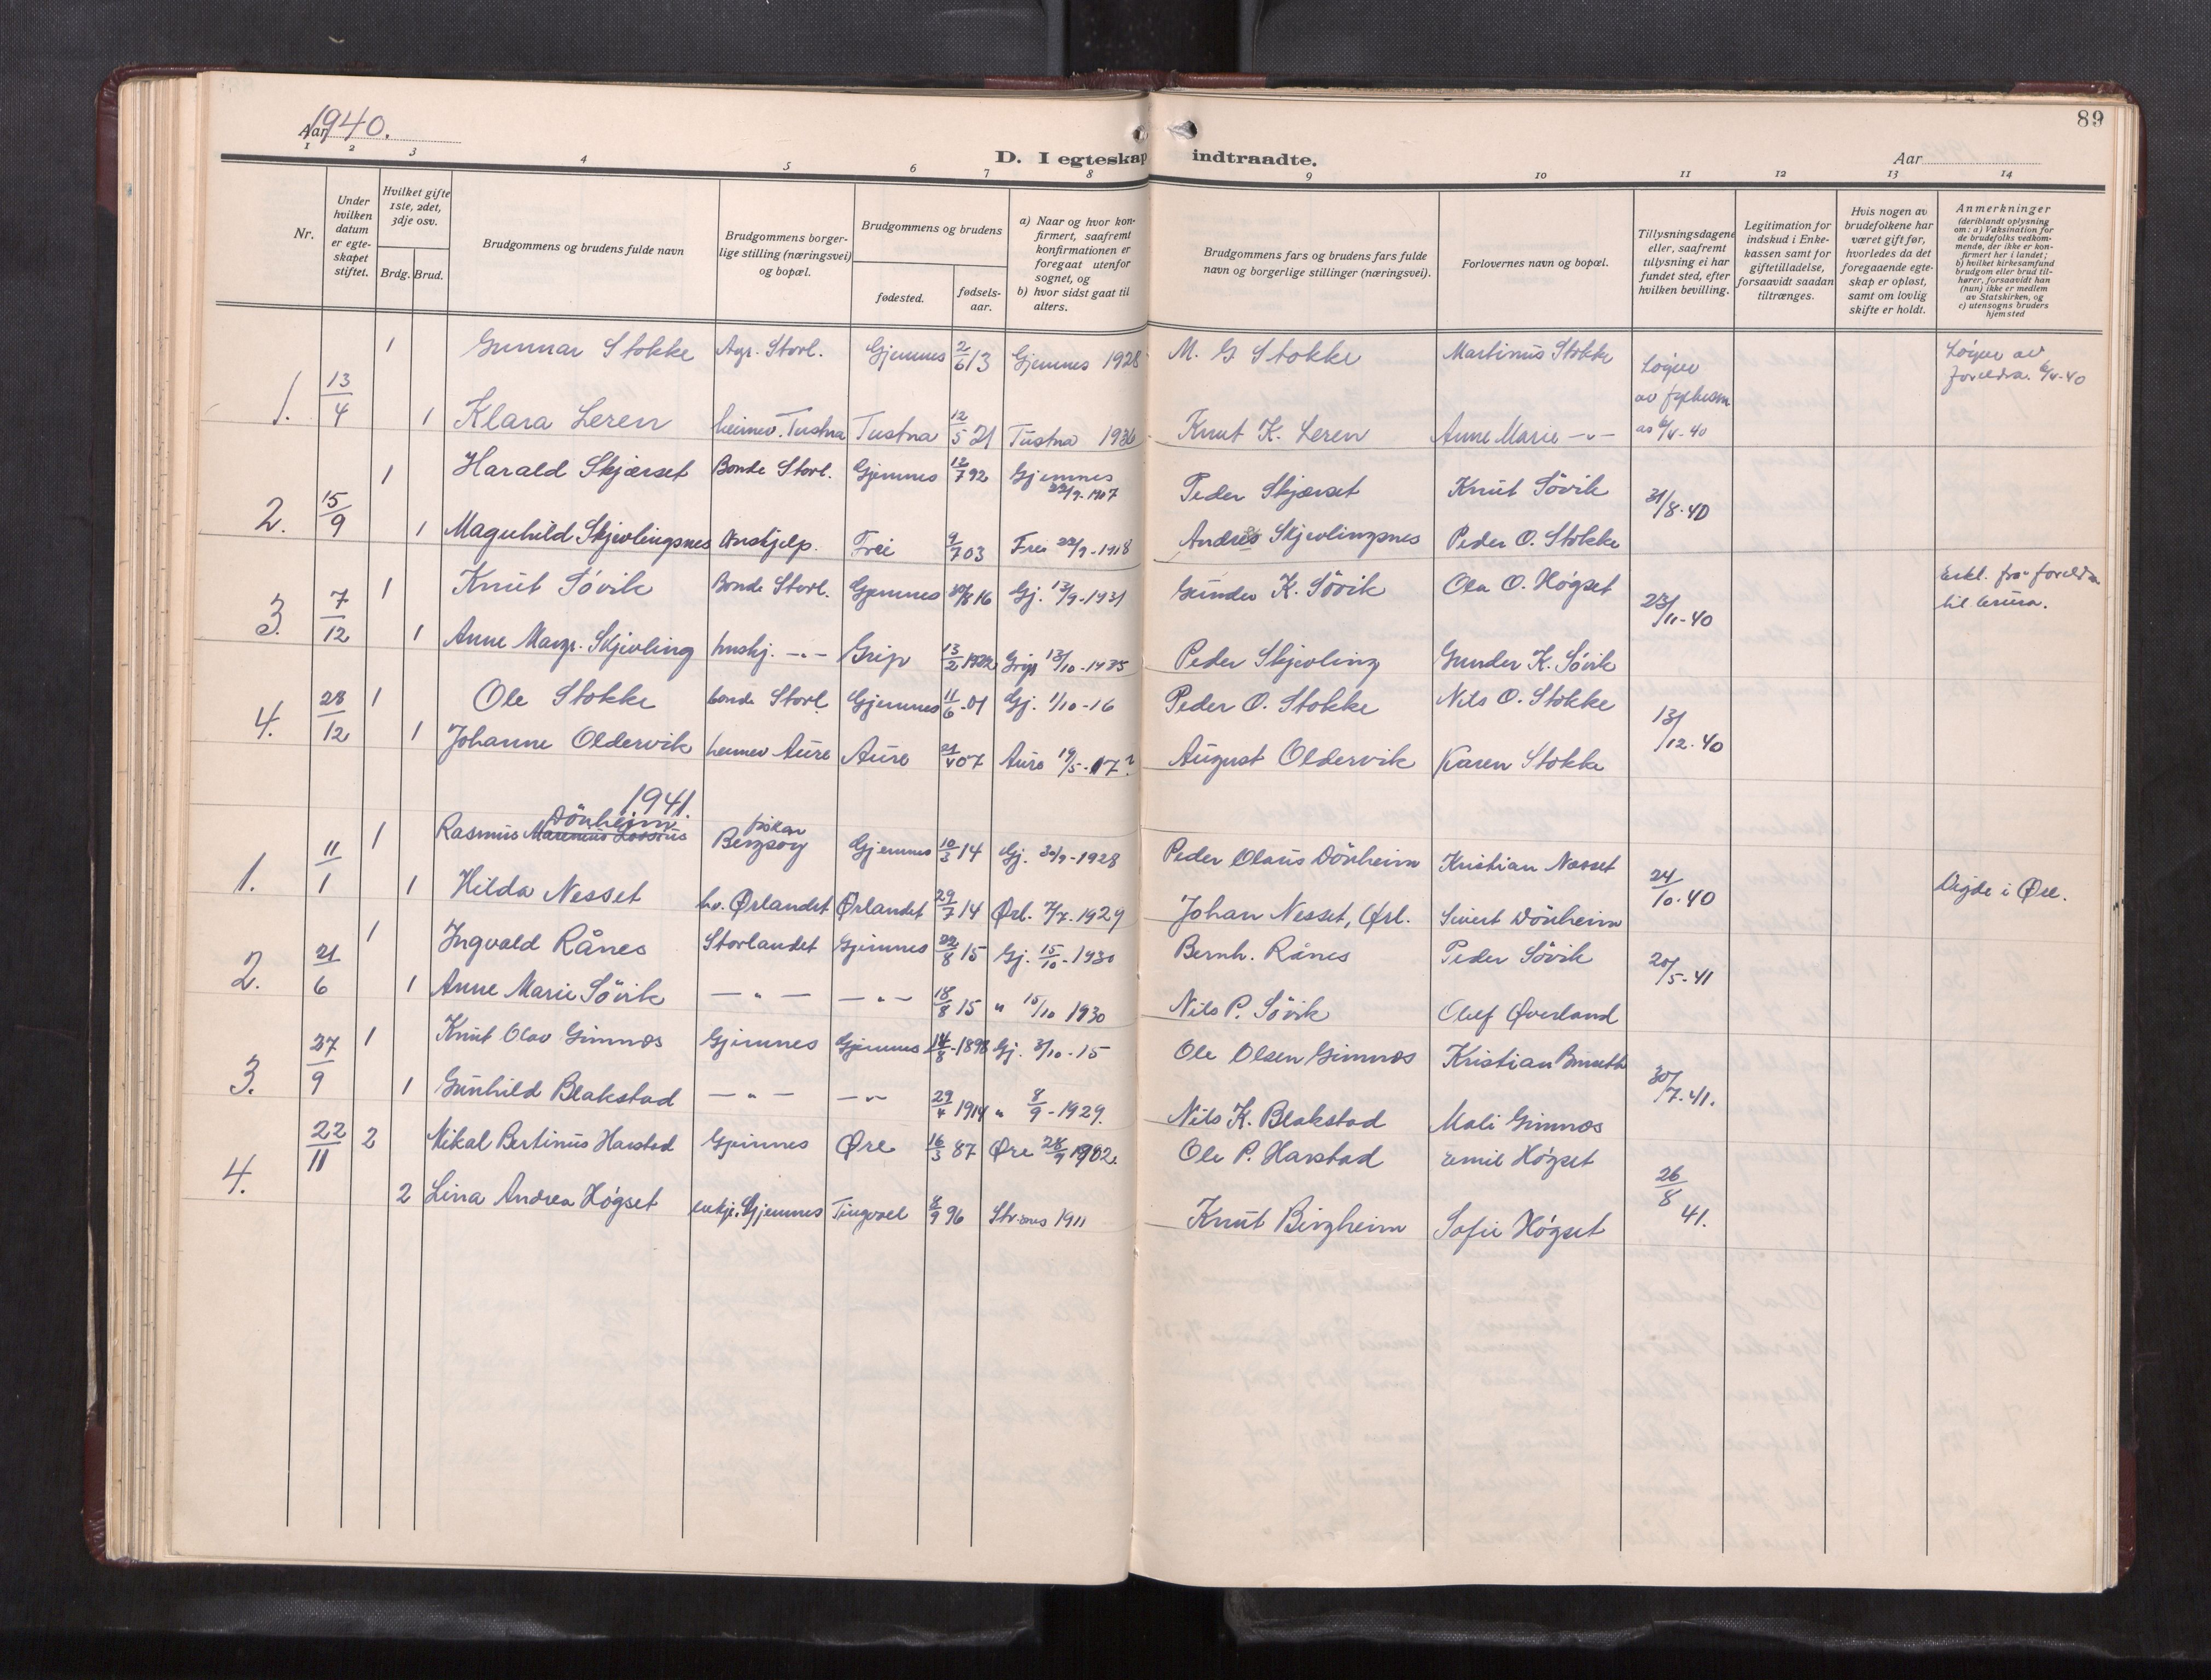 89
Aar 1940.
D. I egteskap indtraadte.
Aar
1 2 3 4 5 6 7 8 9 10 11 12 13 14
Nr.
Under hvilken datum er egte-skapet stiftet.
Hvilket gifte 1ste, 2det, 3dje osv.
Brdg. Brud.
Brudgommens og brudens fulde navn
Brudgommens borger-lige stilling (næringsvei) og bopæl.
Brudgommens og brudens
fødested.
fødsels-aar.
a) Naar og hvor kon-firmert, saafremt konfirmationen er foregaat utenfor sognet, og
b) hvor sidst gaat til alters.
Brudgommens fars og brudens fars fulde navn og borgerlige stillinger (næringsvei).
Forlovernes navn og bopæl.
Tillysningsdagene eller, saafremt tillysning ei har fundet sted, efter hvilken bevilling.
Legitimation for indskud i Enke-kassen samt for giftetilladelse, forsaavidt saadan tiltrænges.
Hvis nogen av brudefolkene har været gift før, hvorledes da det foregaaende egte-skap er opløst, samt om lovlig skifte er holdt.
Anmerkninger
(deriblandt oplysning om: a) Vaksination for de brudefolks vedkom-mende, der ikke er kon-firmert her i landet; b) hvilket kirkesamfund brudgom eller brud til-hører, forsaavidt han (hun) ikke er medlem av Statskirken, og c) utensogns bruders hjemsted
1. 13/4 1 Gunnar Stokke Agr. Storl. Gjemnes 2/6 13 Gjemnes 1928 M. G Stokke Martinus Stokke Løyve av 6/4-40 Løyve av foreldra. 6/4-40
1 Klara Leren heimev. Tustna Tustna 12/5 21 Tustna 1936 Knut K. Leren Anne Marie -"-
2. 15/9 1 Harald Skjærset Bonde Storl. Gjemnes 12/7 92 Gjemnes 22/9-1907 Peder Skjærset Knut Søvik 31/8-40
1 Magnhild Skjevlingsnes Frei 9/7 03 Frei 22/9-1918 Andreas Skjevlingsnes Peder O. Stokke
3. 7/12 1 Knut Søvik Bonde Storl. Gjemnes 30/8 16 Gj. 13/9-1931 Gunder K. Søvik Ola O. Høgset 23/11-40 Erkl. frå foreldra til brura.
1 Anne Margr. Skjevling hushj. -"- Grip 13/2 1922 Grip 13/10-1935 Peder Skjevling Gunder K. Søvik
4. 28/12 1 Ole Stokke bonde Storl. Gjemnes 11/6-01 Gj. 1/10-16 Peder O. Stokke Nils O. Stokke 13/12-40
1 Johanne Oldervik heimev Aure Aure 21/4 07 Aure 19/5-17? August Oldervik Karen Stokke
1941.
1. 11/1 1 Rasmus Dönheim fiskar Bergsøy Gjemnes 10/3 14 Gj. 30/9-1928 Peder Olaus Dönheim Kristian Nesset 24/10-40 Vigde i Øre.
1 Hilda Nesset hv. Ørlandet Ørlandet 29/7 14 Ørl. 7/7-1929 Johan Nesset, Ørl. Sivert Dönheim
2. 21/6 1 Ingvald Rånes Storlandet Gjemnes 22/8 15 Gj. 15/10-1930 Bernh. Rånes Peder Søvik 20/5-41
1 Anne Marie Søvik -"- -"- 18/8 15 " 15/10 1930 Nils P. Søvik Oluf Øverland
3. 27/9 1 Knut Olav Gimnes Gjemnes Gjemnes 14/8-1898 Gj. 3/10-15 Ole Olsen Gimnes Kristian 30/7-41.
1 Gunhild Blakstad -"- -"- 29/4 1914 " 8/9-1929. Nils K. Blakstad Mali Gimnes
4. 22/11 2 Mikal Bertinus Harstad Gjemnes Øre 16/3 87 Øre 28/9 1902. Ole P. Harstad Emil Høgset 26/8 41.
2 Lina Andrea Høgset enkje, Gjemnes Tingvoll 8/9 96 1911 Knut Bergheim Sofie Høgset